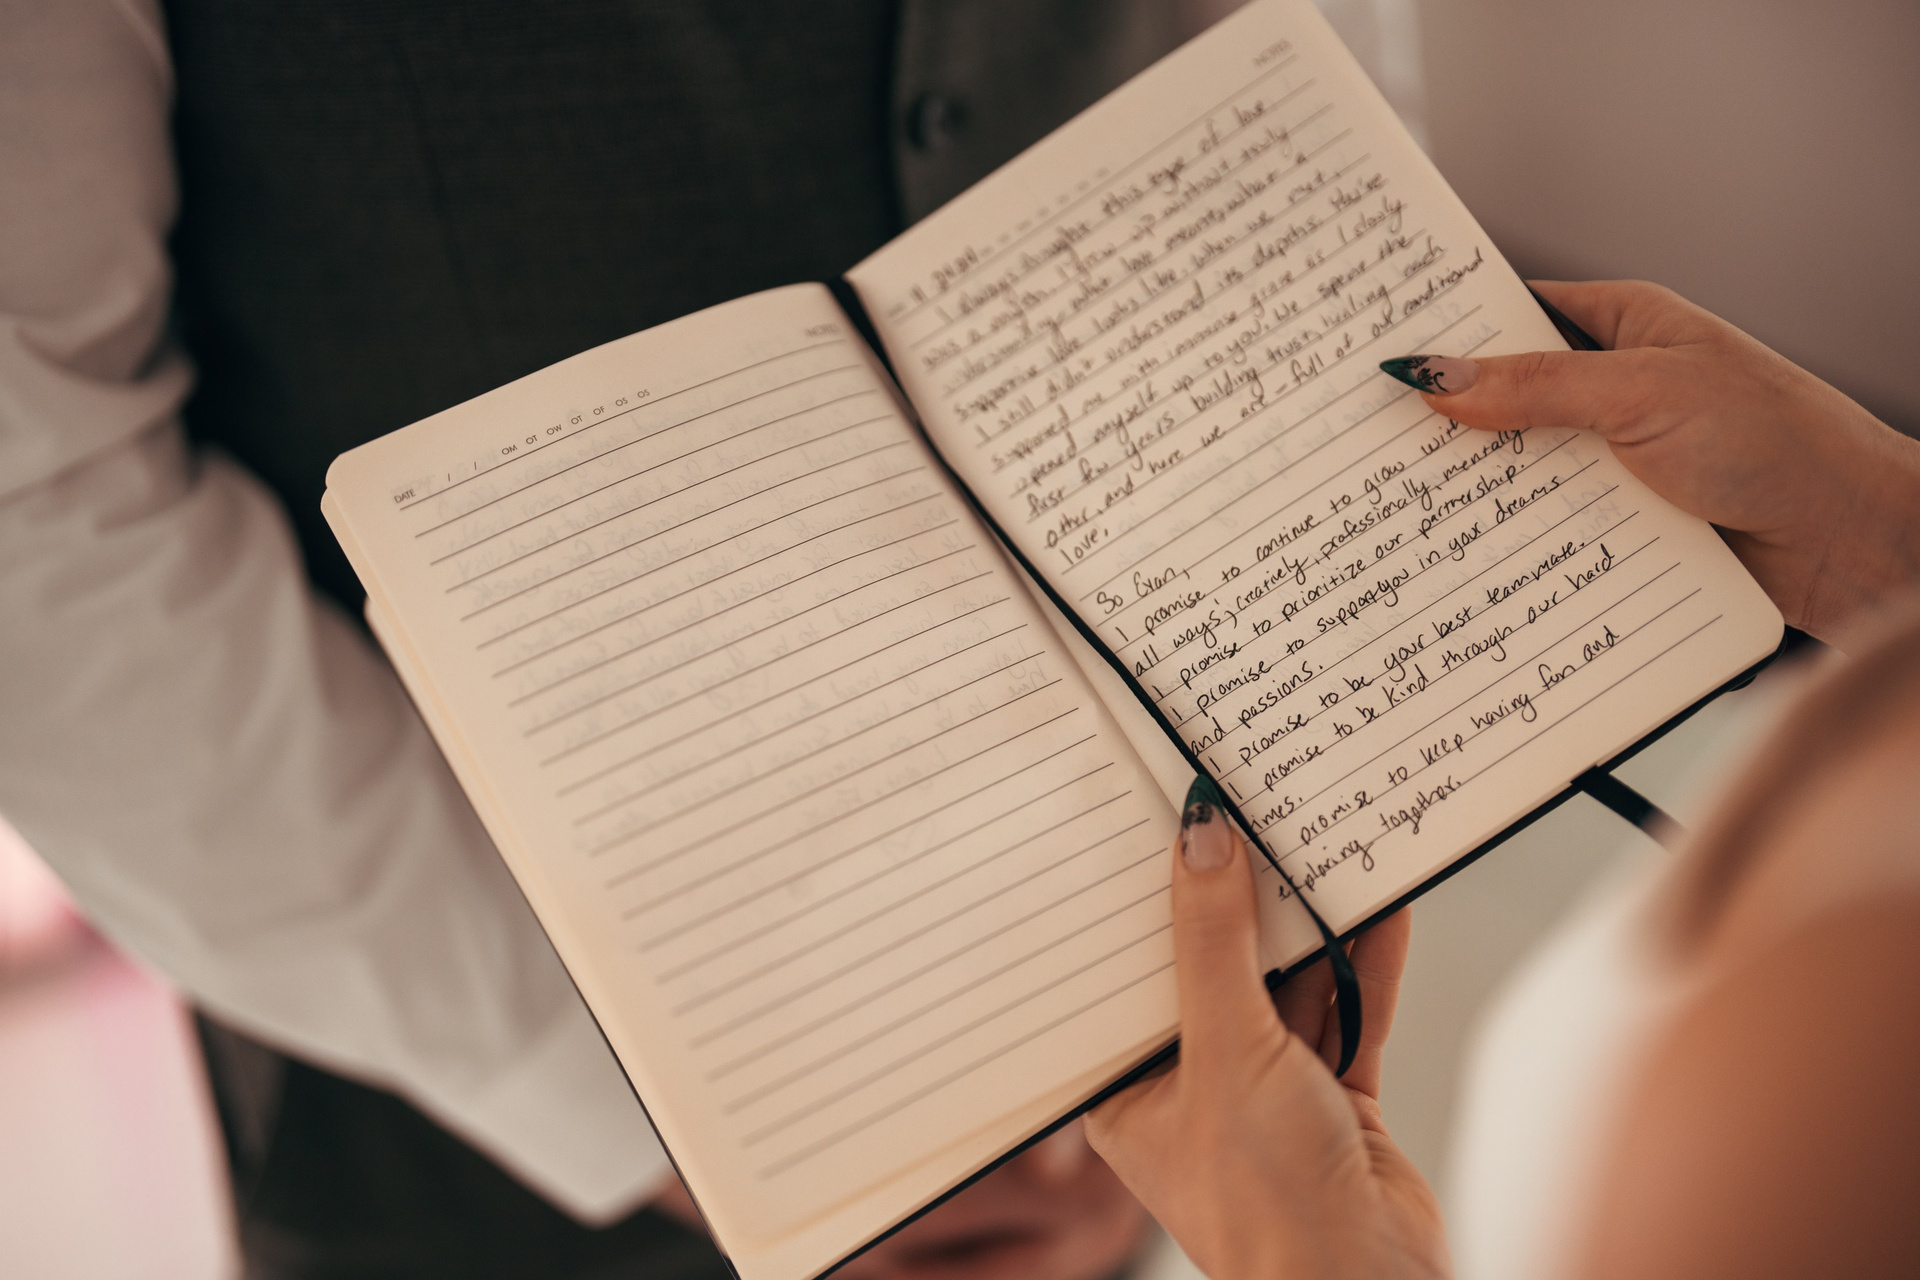 NOTES
DATE / / OM OT OW OT OF OS OS
NOTES
I always thought this type of love
was a myth. I grew up without truly
understanding what love meant, what a
supportive love looks like. When we met,
I still didn't understand its depths. You've
supported me with immense grace as I slowly
opened myself up to you. We spent the
first few years building trust, healing each
other, and here we are - full of our conditional
love.
So Evan,
I promise to continue to grow with
all ways; creatively, professionally, mentally
I promise to prioritize our partnership.
I promise to support you in your dreams
and passions.
I promise to be your best teammate.
I promise to be kind through our hard
times.
I promise to keep having fun and
exploring together.